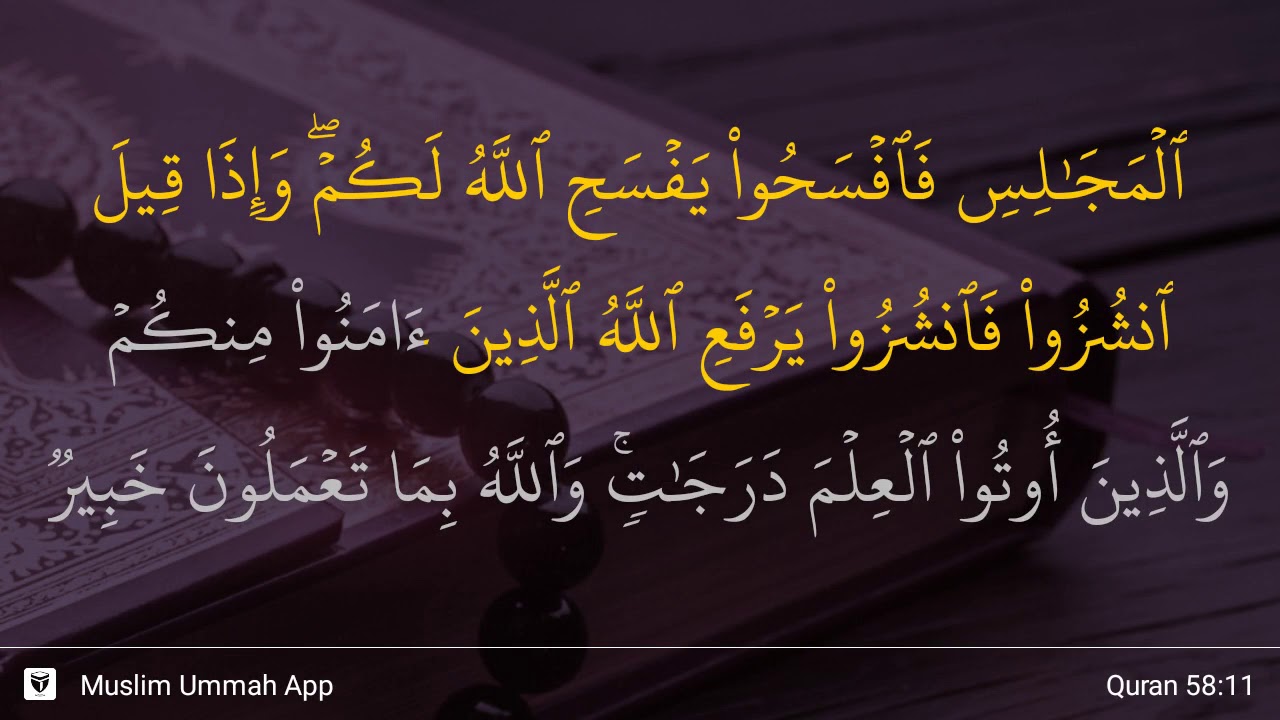 ٱلۡمَجَٰلِسِ فَٱفۡسَحُواْ يَفۡسَحِ ٱللَّهُ لَكُمۡۖ وَإِذَا قِيلَ
ٱنشُزُواْ فَٱنشُزُواْ يَرۡفَعِ ٱللَّهُ ٱلَّذِينَ ءَامَنُواْ مِنكُمۡ
وَٱلَّذِينَ أُوتُواْ ٱلۡعِلۡمَ دَرَجَٰتٖۚ وَٱللَّهُ بِمَا تَعۡمَلُونَ خَبِيرٞ
Muslim Ummah App
Quran 58:11